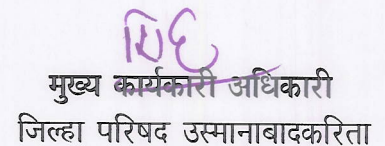 मुख्य कार्यकारी अधिकारी
जिल्हा परिषद उस्मानाबादकरिता